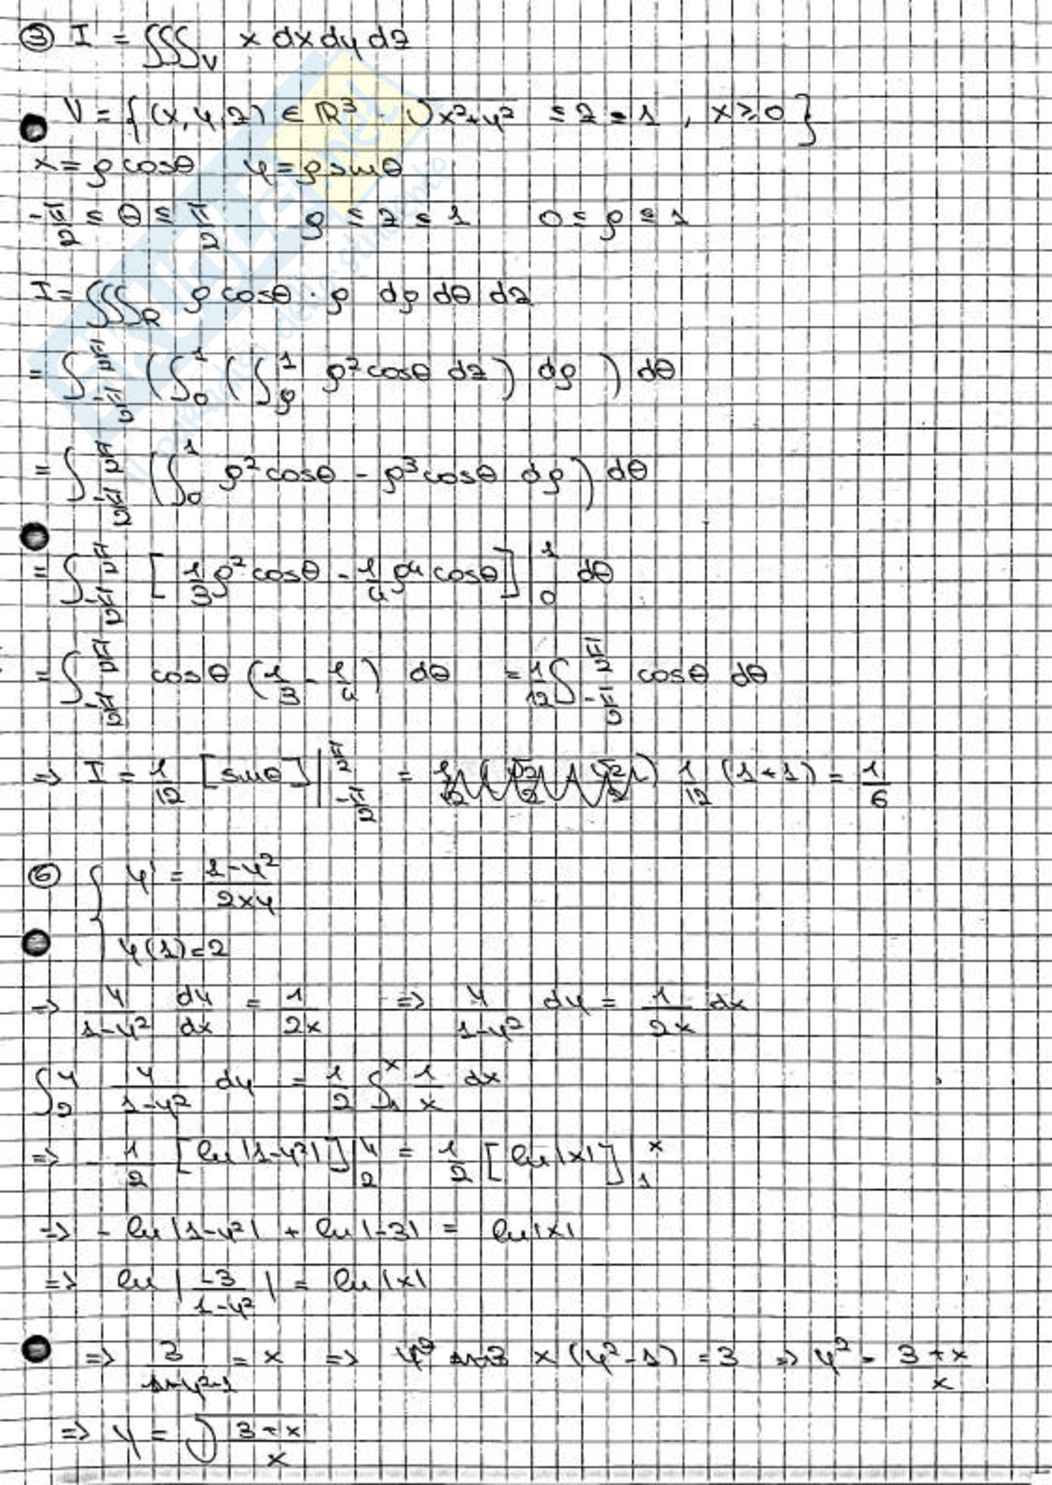 ③ I = ∫∫∫_V x dx dy dz
V = {(x,y,z) ∈ ℝ³ : √x²+y² ≤ z ≤ 1 , x ≥ 0}
x = ρcosθ y = ρsinθ
-π/2 ≤ θ ≤ π/2 ρ ≤ z ≤ 1 0 ≤ ρ ≤ 1
I = ∫∫∫_R ρcosθ · ρ dρ dθ dz
= ∫_{-π/2}^{π/2} (∫_0^1 (∫_ρ^1 ρ²cosθ dz) dρ) dθ
= ∫_{-π/2}^{π/2} (∫_0^1 ρ²cosθ - ρ³cosθ dρ) dθ
= ∫_{-π/2}^{π/2} [1/3 ρ²cosθ - 1/4 ρ⁴cosθ]|_0^1 dθ
= ∫_{-π/2}^{π/2} cosθ (1/3 - 1/4) dθ = 1/12 ∫_{-π/2}^{π/2} cosθ dθ
=> I = 1/12 [sinθ]|_{-π/2}^{π/2} = 1/12 (1+1) = 1/6
⑥ { y' = (1-y²)/(2xy)
y(1) = 2
=> y/(1-y²) dy/dx = 1/2x => y/(1-y²) dy = 1/2x dx
∫_2^y y/(1-y²) dy = 1/2 ∫_1^x 1/x dx
=> -1/2 [ln|1-y²|]|_2^y = 1/2 [ln|x|]_1^x
=> -ln|1-y²| + ln|-3| = ln|x|
=> ln|-3/(1-y²)| = ln|x|
=> 3/(y²-1) = x => x(y²-1) = 3 => y² = (3+x)/x
=> y = √(3+x)/x